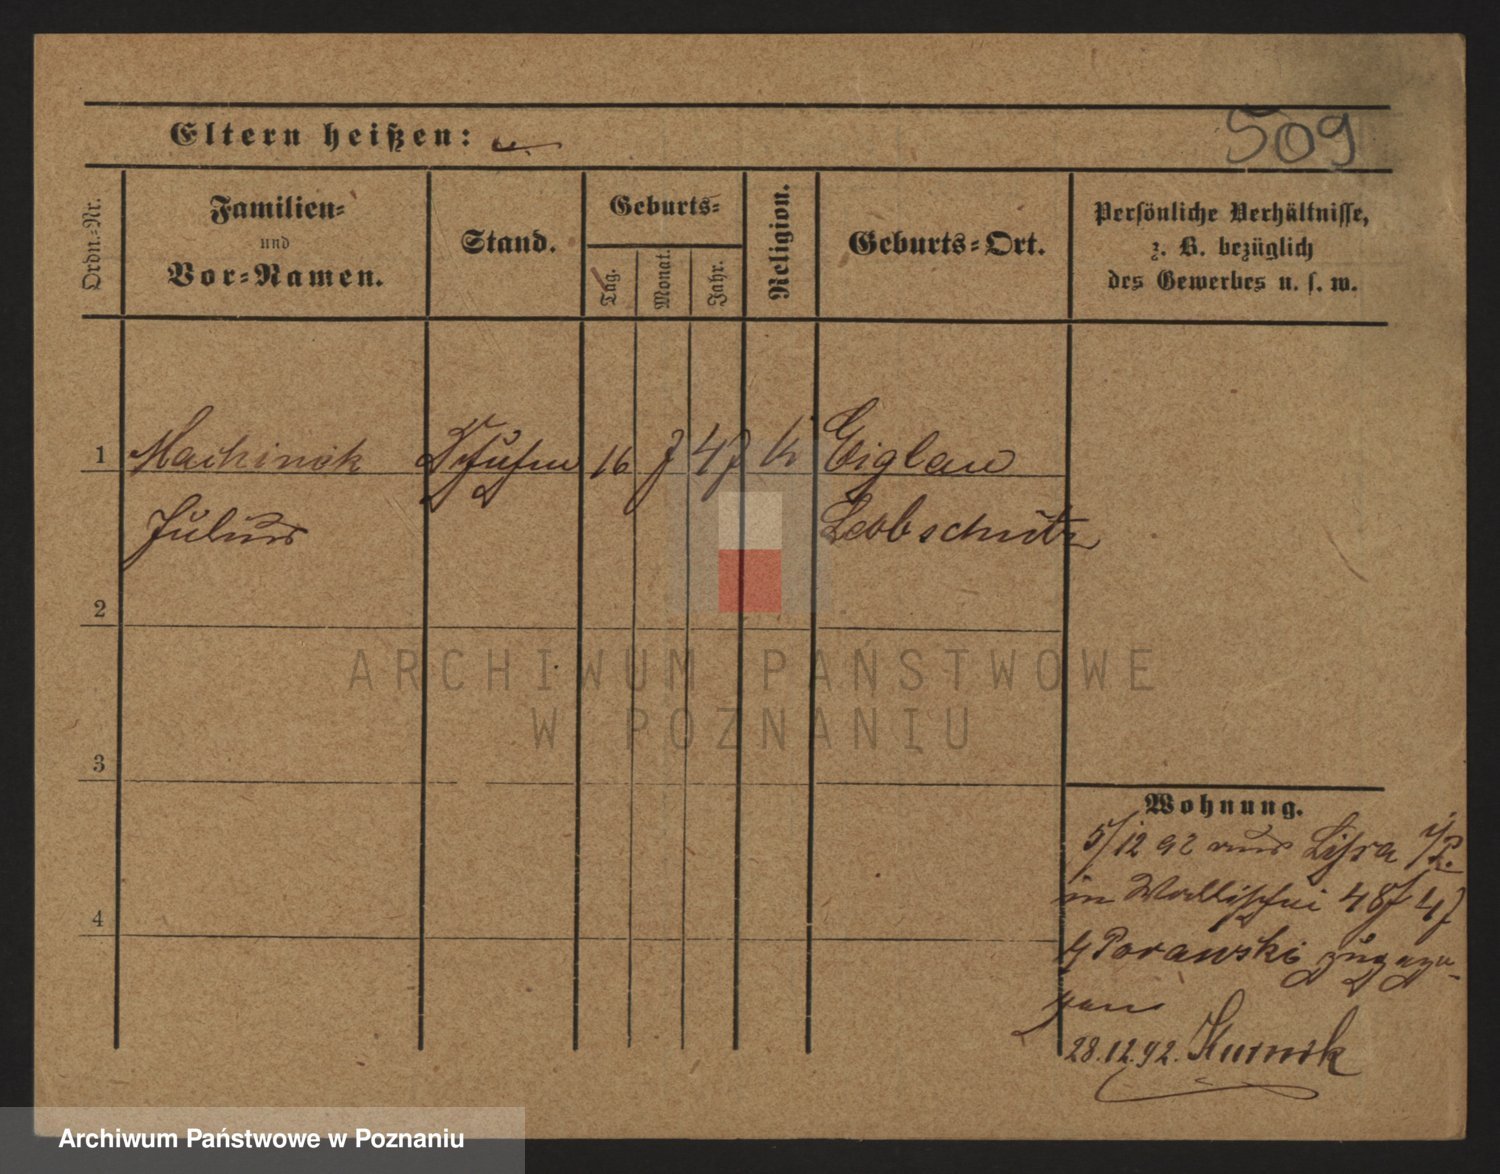 509
Eltern heißen:
Ordn.-Nr.
Familien-
und
Vor-Namen.
Stand.
Geburts-
Tag.
Monat.
Jahr.
Religion.
Geburts-Ort.
Persönliche Verhältnisse,
z. B. bezüglich
des Gewerbes u. s. w.
1 16 7 47 k Eiglau
Julius Leobschütz
2
3
4
Wohnung.
5/12 92 aus Lissa i/P.
in Wallischei 48/47
Porawski zugezo-
gen
28.12.92. Kurnik
ARCHIWUM PAŃSTWOWE
W POZNANIU
Archiwum Państwowe w Poznaniu